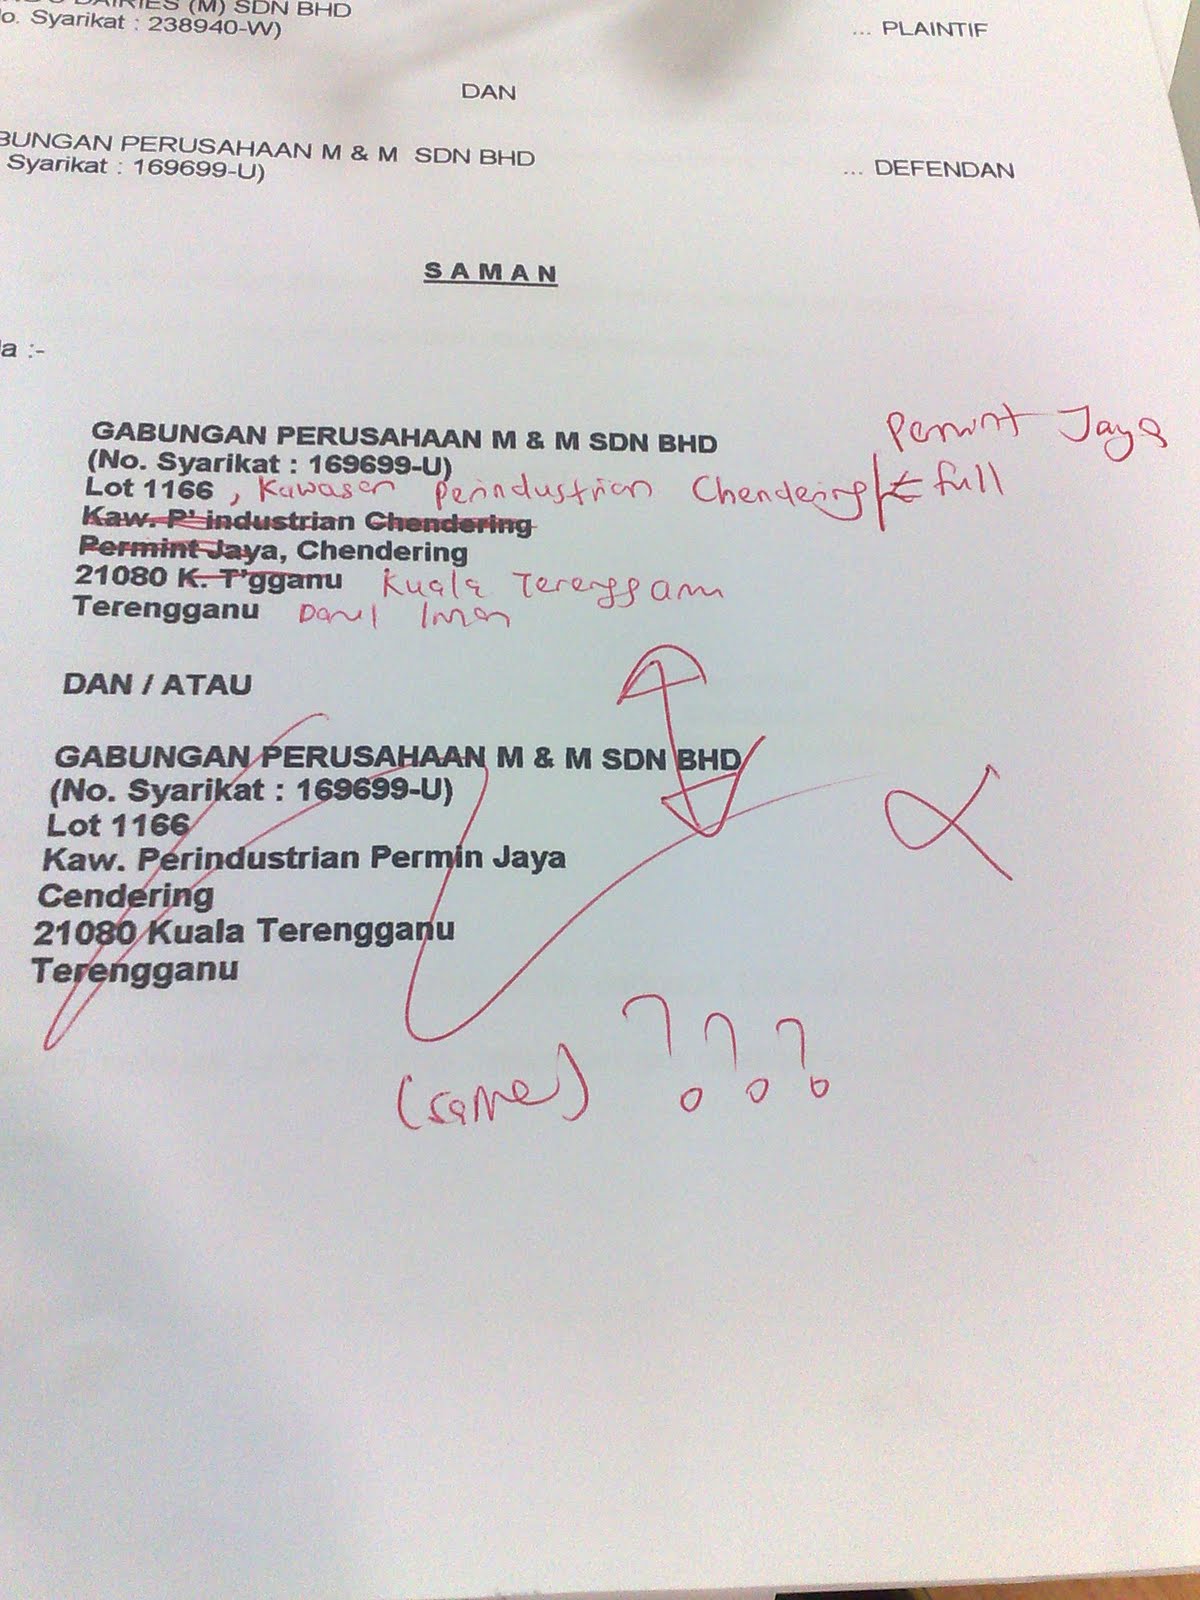 DAIRIES (M) SDN BHD
o. Syarikat : 238940-W)
... PLAINTIF
DAN
BUNGAN PERUSAHAAN M & M SDN BHD
Syarikat : 169699-U)
... DEFENDAN
SAMAN
a :-
Permint Jaya
GABUNGAN PERUSAHAAN M & M SDN BHD
(No. Syarikat : 169699-U)
Lot 1166 , Kawasan Perindustrian Chendering/ ← full
Kaw. P' industrian Chendering
Permint Jaya, Chendering
21080 K. T'gganu Kuala Terengganu
Terengganu Darul Iman
DAN / ATAU
GABUNGAN PERUSAHAAN M & M SDN BHD
(No. Syarikat : 169699-U)
Lot 1166
Kaw. Perindustrian Permin Jaya
Cendering
21080 Kuala Terengganu
Terengganu
(same) ???